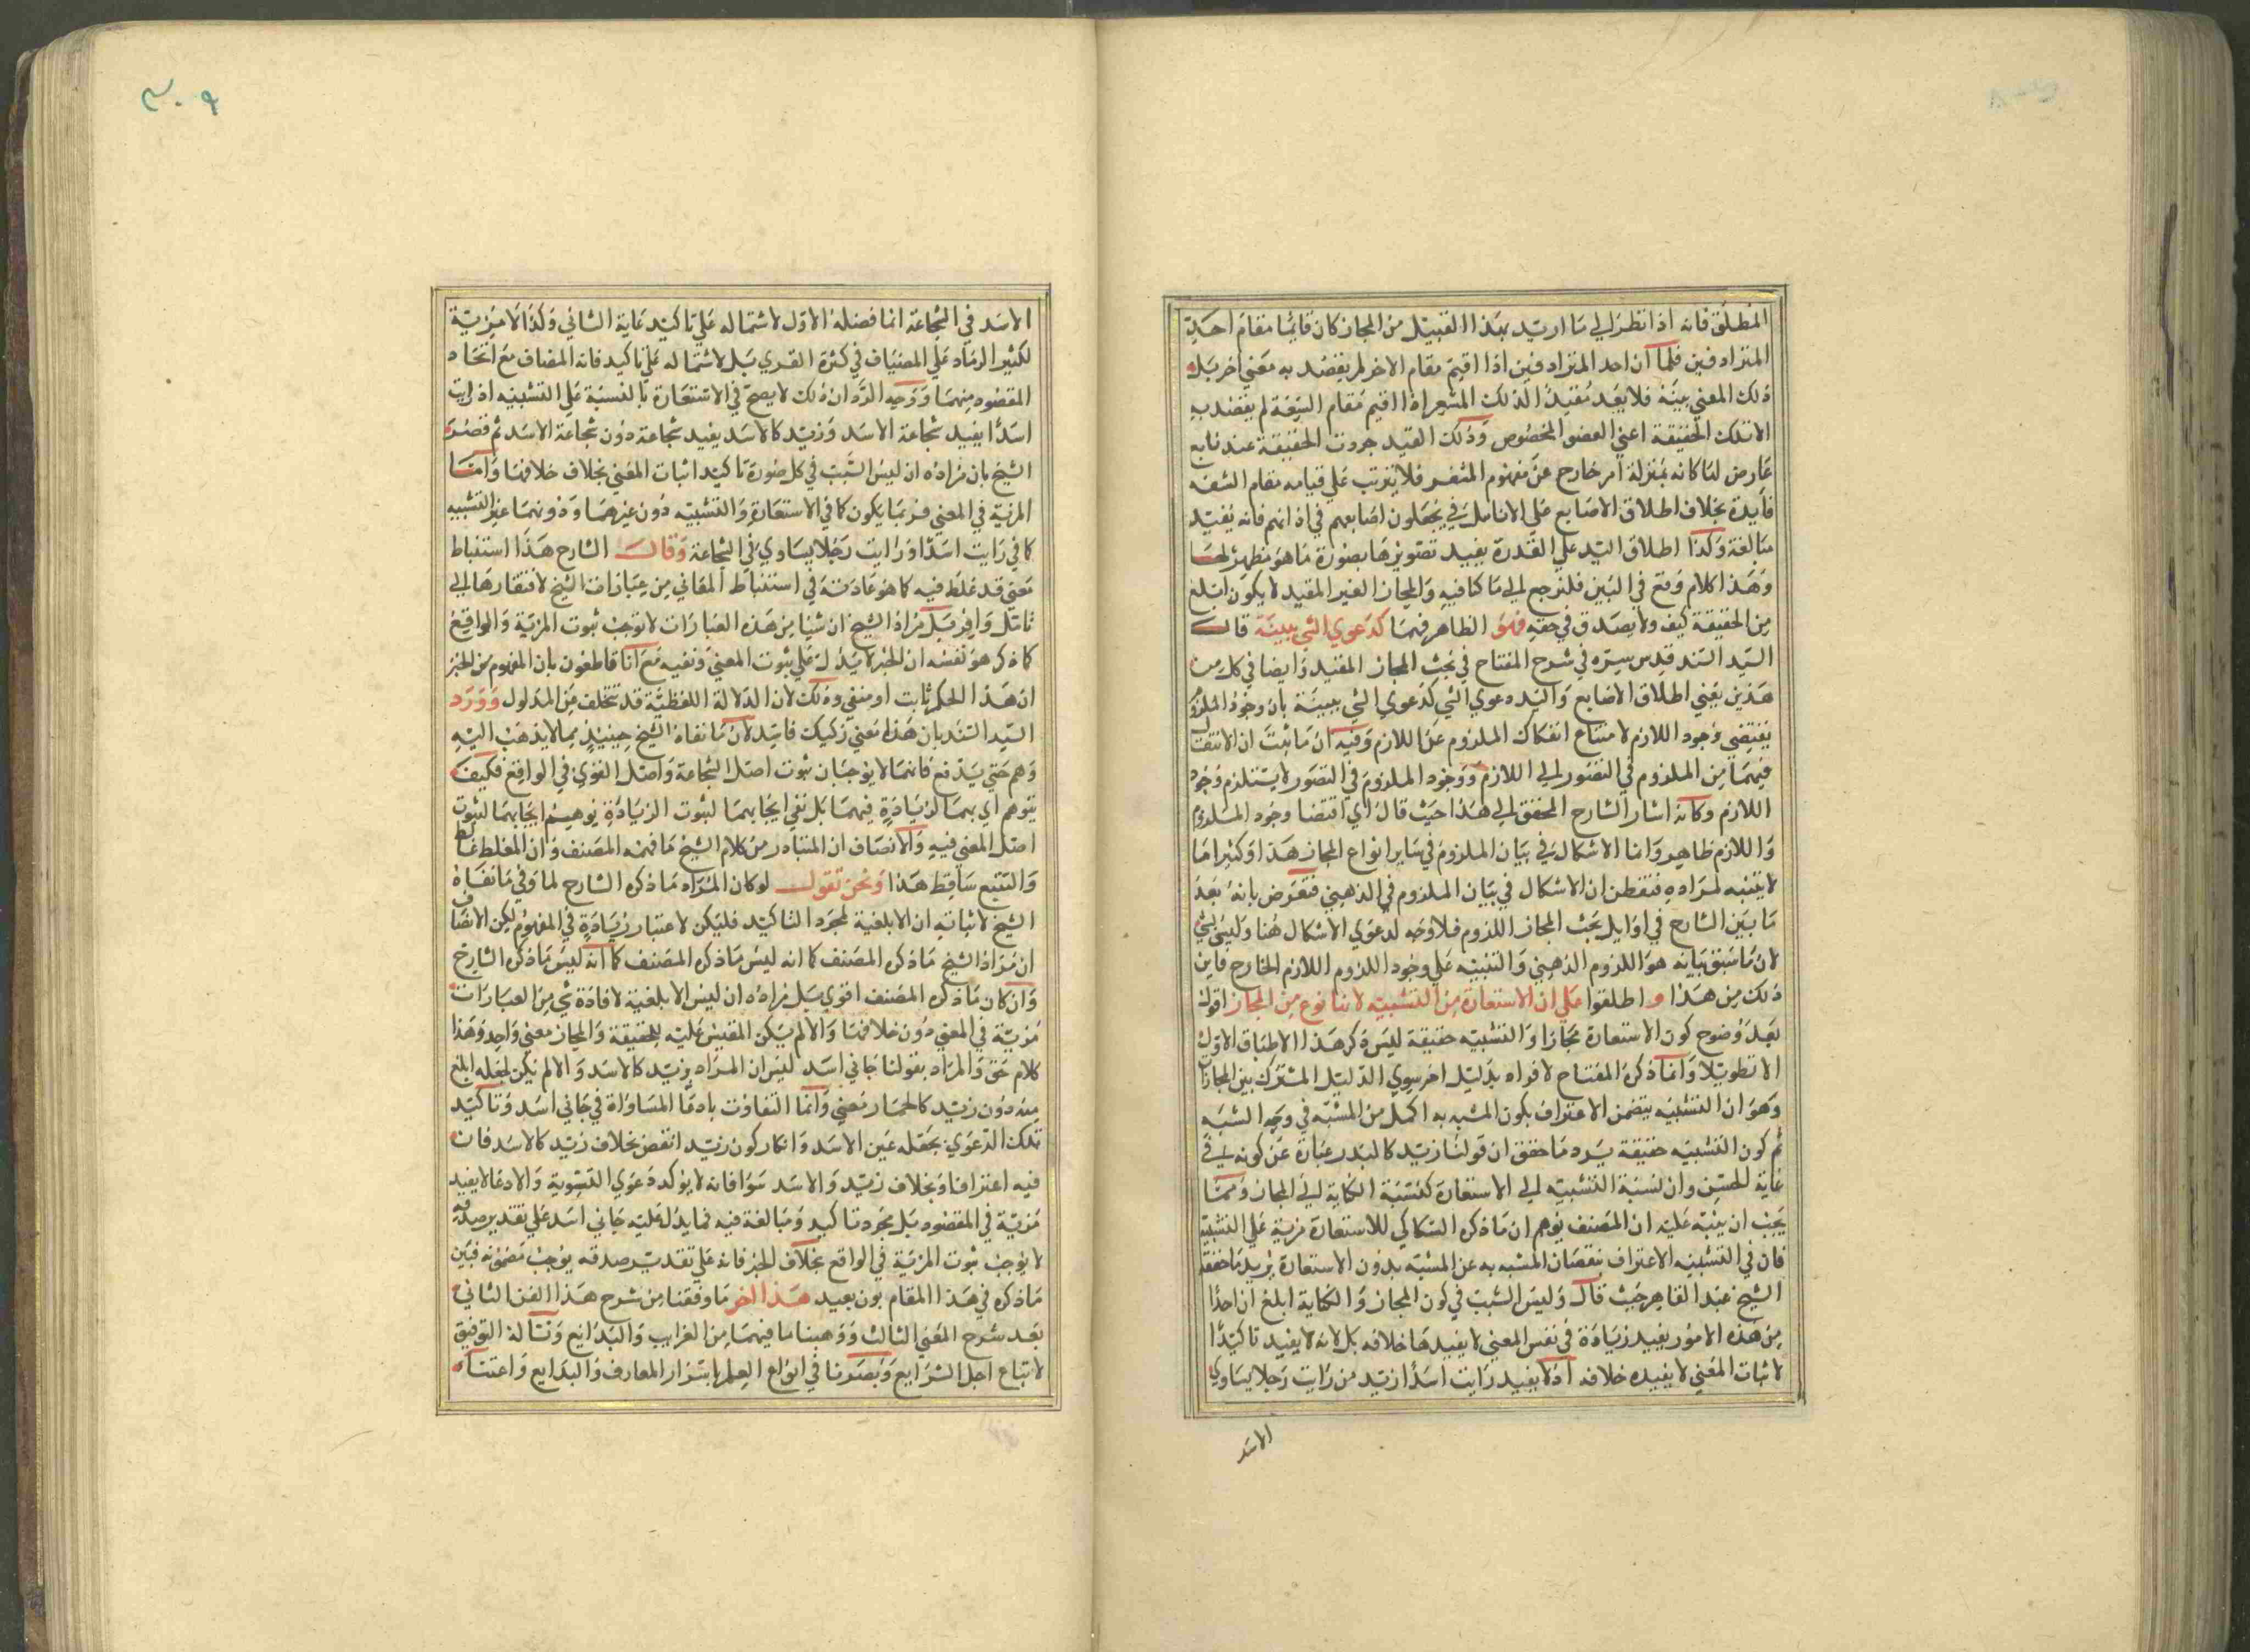 المطلق فانه اذا نظر الي ما اريد بهذا القبيل من المجاز كان قايما مقام احد
المترادفين فلما ان احد المترادفين اذا اقيم مقام الاخر لم يقصد به معني اخر بل
ذلك المعني بعينه فلا يعد مفيدا كذلك المشعر اذا اقيم مقام الشفة لم يقصد به
الا تلك الحقيقة اعني العضو المخصوص وذلك القيد جردت الحقيقة عنه تابع
عارض لها كانه بمنزلة امر خارج عن مفهوم المشفر فلا يترتب علي قيامه مقام الشفه
فايدة بخلاف اطلاق الاصابع علي الانامل في يجعلون اصابعهم في اذانهم فانه يفيد
مبالغة وكذا اطلاق اليد علي القدرة يفيد تصويرها بصورة ما هو مظهر لها
وهذا كلام وقع في البين فلنرجع الي ما كنا فيه والمجاز الغير المقيد لا يكون ابلغ
من الحقيقة كيف ولا يصدق في حقه فهو الظاهر فيها كدعوي الشي ببينة قال
السيد السند قدس سره في شرح المفتاح في بحث المجاز المفيد وايضا في كل من
هذين يعني اطلاق الاصابع واليد دعوي الشي كدعوي الشي ببينة بان وجود الملزوم
يقتضي وجود اللازم لامتناع انفكاك الملزوم عن اللازم وفيه ان ما ثبت ان الانتقال
فيهما من الملزوم في التصور الي اللازم ووجود الملزوم في التصور لا يستلزم وجود
اللازم وكانه اشار الشارح المحقق الي هذا حيث قال اي اقتضا وجود الملزوم
واللازم ظاهر وانما الاشكال في بيان الملزوم في ساير انواع المجاز هذا وكثيرا ما
لا يتنبه لمراده فتفطن ان الاشكال في بيان الملزوم في الذهني فتعرض بانه بعد
ما بين الشارح في اوايل بحث المجاز اللزوم فلا وجه لدعوي الاشكال هنا وليس بشي
لان ما سبق بيانه هو اللزوم الذهني والتنبيه علي وجود اللزوم اللازم الخارج فاين
ذلك من هذا و اطلقوا علي ان الاستعارة من التشبيه لانها نوع من المجاز اقول
بعد وضوح كون الاستعارة مجازا والتشبيه حقيقة ليس ذكر هذا الاطباق الاول
الا تطويلا وانما ذكره المفتاح لافراده بدليل اخر سوي الدليل المشترك بين المجازات
وهو ان التشبيه يتضمن الاعتراف بكون المشبه به اكمل من المشبه في وجه الشبه
ثم كون التشبيه حقيقة يرد ما حقق ان قولنا زيد كالبدر عبارة عن كونه في
غاية الحسن وان نسبة التشبيه الي الاستعارة كنسبة الكناية الي المجاز ومما
يجب ان ينبه عليه ان المصنف يوهم ان ما ذكره السكاكي للاستعارة مزية علي التشبيه
فان في التشبيه الاعتراف بنقصان المشبه به عن المشبه بدون الاستعارة يزيد ما حققه
الشيخ عبد القاهر حيث قال وليس السبب في كون المجاز والكناية ابلغ ان احدا
من هذه الامور يفيد زيادة في نفس المعني لا يفيدها خلافه بل لانه لا يفيد تاكيدا
لاثبات المعني لا يفيده خلافه اذ لا يفيد رايت اسدا ازيد من رايت رجلا يساوي
الاسد
٣٠٩
الاسد في الشجاعة انما فضله الاول لاشتماله علي تاكيد غاية الثاني وكذا لا مزية
لكثير الرماد علي المضياف في كثرة القري بل لاشتماله علي تاكيد فاته المضاف مع اتحاد
المقصود منهما ووجه الرد ان ذلك لا يصح في الاستعارة بالنسبة علي التشبيه اذ رايت
اسدا يفيد شجاعة الاسد وزيد كالاسد يفيد شجاعة دون شجاعة الاسد ثم قصد
الشيخ بان مراده ان ليس السبب في كل صورة تاكيد اثبات المعني بخلاف خلافها واما
المزية في المعني فربما يكون كما في الاستعارة والتشبيه دون غيرهما ودونهما غير التشبيه
كما في رايت اسدا ورايت رجلا يساوي في الشجاعة وقال الشارح هذا استنباط
معني قد غلط فيه كما هو عادته في استنباط المعاني من عبارات الشيخ لافتقارها الي
تامل وافر بل مراد الشيخ ان شيا من هذه العبارات لا توجب ثبوت المزية والواقع
كما ذكر هو نفسه ان الخبر لا يدل علي ثبوت المعني ونفيه مع انا قاطعون بان المفهوم من الخبر
ان هذا الحكم ثابت او منفي وذلك لان الدلالة اللفظية قد تتخلف من المدلول وورد
السيد السند بان هذا معني ركيك فاسد لان ما نفاه الشيخ حينيذ مما لا يذهب اليه
وهم حتي يدفع فانهما لا يوجبان ثبوت اصل الشجاعة واصل القوي في الواقع فكيف
يتوهم اي بهما لزيادة فيهما بل نفي ايجابهما لثبوت الزيادة يوهم ايجابهما لثبوت
اصل المعني فيه والانصاف ان المتبادر من كلام الشيخ ما فهمه المصنف وان المغلط غالط
والتتبع ساقط هذا ونحن نقول لو كان المراد ما ذكره الشارح لما وفي ما نفاه
الشيخ لاثباته ان الابلغية لمجرد التاكيد فليكن لاعتبار زيادة في المفهوم لكن الانصاف
ان مراد الشيخ ما ذكره المصنف كما انه ليس ما ذكره المصنف كما انه ليس ما ذكره الشارح
وان كان ما ذكره المصنف اقوي بل مراده ان ليس الابلغية لافادة شي من العبارات
مزية في المعني دون خلافها والا لم يكن المقيس عليه للحقيقة والمجاز معني واحد وهذا
كلام حق والمراد بقولنا جاني اسد ليس ان المراد بزيد كالاسد والا لم يكن لجعله ابلغ
منه دون زيد كالحمار معني وانما التفاوت بادعا المساواة في جاني اسد وتاكيد
تلك الدعوي بجعله عين الاسد وانكار كون زيد انقص بخلاف زيد كالاسد فان
فيه اعترافا وبخلاف زيد والاسد سوا فانه لا يؤكد دعوي التسوية والادعا لا يفيد
مزية في المقصود بل مجرد تاكيد ومبالغة فيه فما يدل عليه جاني اسد علي تقدير صدقه
لا يوجب ثبوت المزية في الواقع بخلاف الخبر فانه علي تقدير صدقه يوجب مضمونه فبين
ما ذكره في هذا المقام بون بعيد هذا اخر ما وفقنا من شرح هذا الفن الثاني
بعد شرح المعني الثالث ووهبنا ما فيهما من الغرايب والبدايع ونساله التوفيق
لاتباع اجل الشرايع وبصرنا في انواع العلم باسرار المعارف والبدايع واعتنا